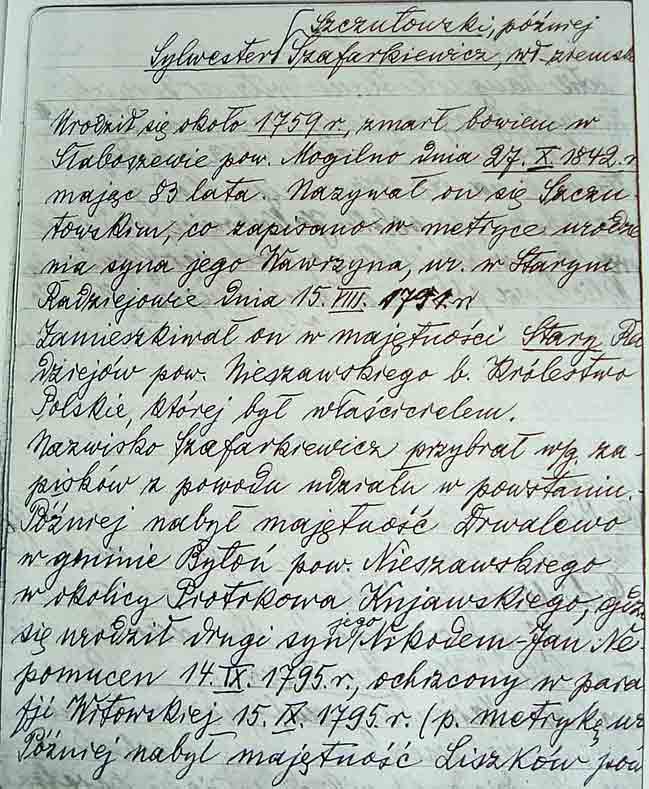 Szczutowski, później
Sylwester Szafarkiewicz, wł. ziemsk
Urodził się około 1759 r, zmarł bowiem w
Słaboszewie pow. Mogilno dnia 27. X. 1842. r
mając 83 lata. Nazywał on się Szczu-
towskim, co zapisano w metryce urodze
nia syna jego Wawrzyna, ur. w Starym
Radziejowie dnia 15. VIII. 1791. r
Zamieszkiwał on w majętności Stary Ra
dziejów pow. Nieszawskiego b. Królestwo
Polskie, której był właścicielem.
Nazwisko Szafarkiewicz przybrał wg. za-
pisków z powodu udziału w powstaniu.
Później nabył majętność Drwalewo
w gminie Bytoń pow. Nieszawskiego
w okolicy Piotrkowa Kujawskiego, gdzi
się urodził drugi syn jego Nikodem-Jan Ne-
pomucen 14. IX. 1795. r., ochrzcony w para
fji Witowskiej 15. IX. 1795. r. (p. metrykę ur
Później nabył majętność Liszków pow